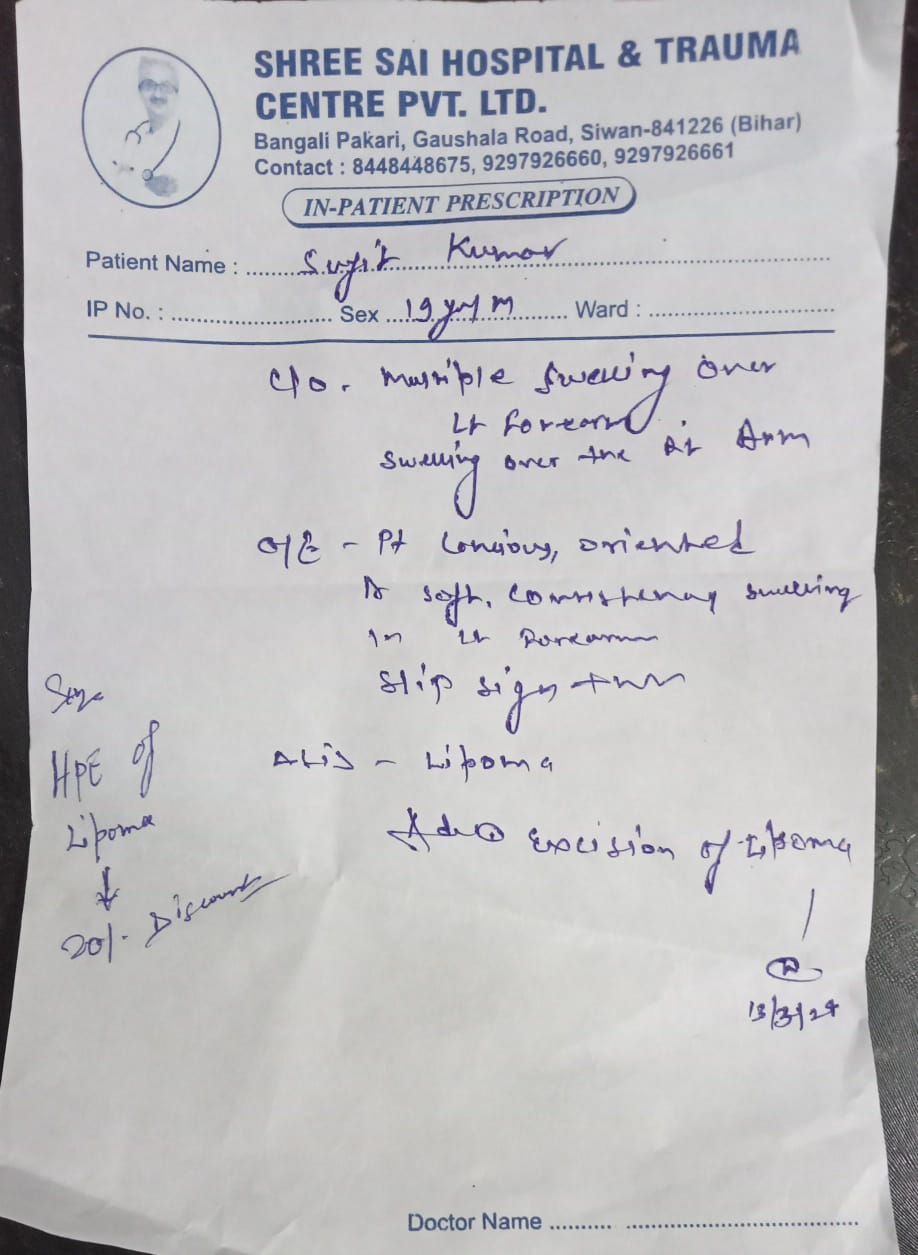 SHREE SAI HOSPITAL & TRAUMA
CENTRE PVT. LTD.
Bangali Pakari, Gaushala Road, Siwan-841226 (Bihar)
Contact : 8448448675, 9297926660, 9297926661
IN-PATIENT PRESCRIPTION
Patient Name : Sujit Kumar
IP No. : Sex 19 yrs/M Ward :
C/O. Multiple swelling over
Lt forearm
swelling over the Rt Arm
O/E - Pt Concious, oriented
soft. consistency swelling
in Lt Forearm
Slip sign +
- Lipoma
Adv excision of Lipoma
13/3/24
HPE of
Lipoma
↓
20/. Discount
Doctor Name